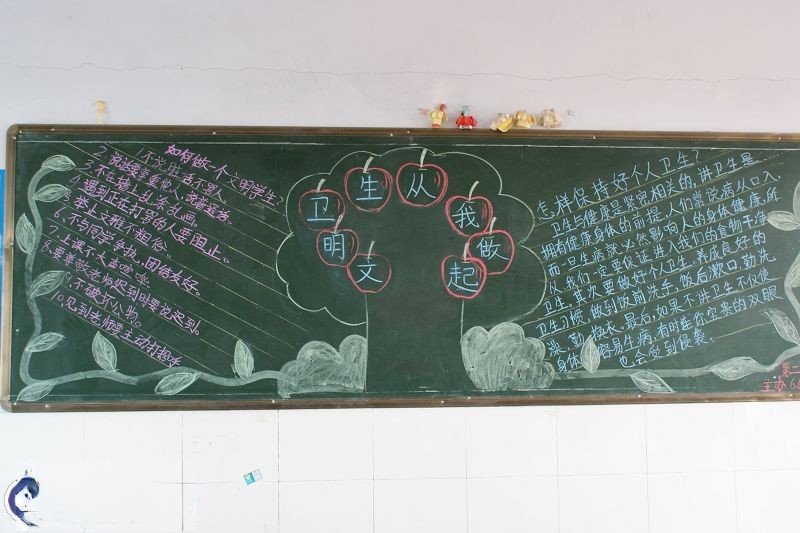 如何做一个文明学生:
1.不说脏话不骂人.
2.说话要尊重他人
3.不在墙上乱涂乱画.
4.遇到正在打骂的人要阻止.
5.举止文雅不粗俗.
6.不与同学争执,团结友好.
7.上课不大声喧哗.
8.要尊敬老师迟到时要说迟到.
9.不破坏公物.
10.见到老师要主动打招呼
卫生从我做起
文明
怎样保持好个人卫生?
卫生与健康是紧密相关的,讲卫生是
拥有健康身体的前提,人们常说病从口入,
而一旦生病就必然影响人的身体健康,所
从,我们一定要保证进入我们的食物干净
卫生,其次要做好个人卫生,养成良好的
卫生习惯,做到饭前洗手,饭后漱口,勤洗
澡,勤换衣.最后,如果不讲卫生不仅使
身体容易生病,有时连你宝贵的双眼
也会受到侵袭.